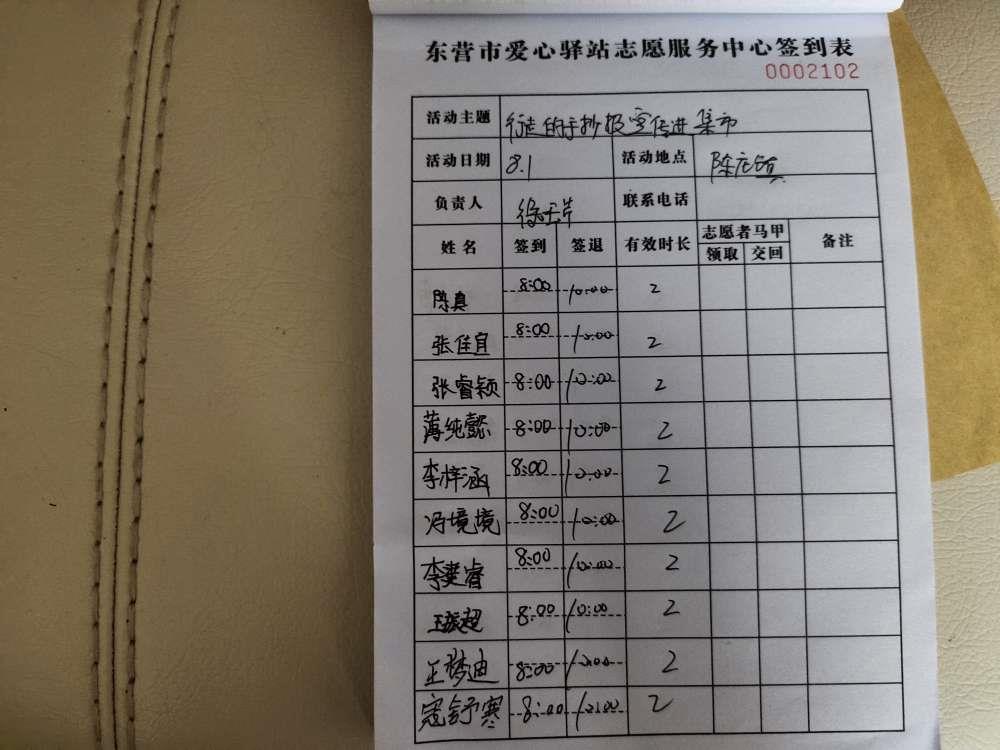 东营市爱心驿站志愿服务中心签到表
0002102
活动主题 行走的手抄报宣传进集市
活动日期 8.1 活动地点 陈庄镇
负责人 联系电话
姓名 签到 签退 有效时长 志愿者马甲 备注
领取 交回
陈真 8:00 10:00 2
张佳宜 8:00 10:00 2
张睿颖 8:00 10:00 2
薄纯懿 8:00 10:00 2
李梓涵 8:00 10:00 2
冯境境 8:00 10:00 2
李奕睿 8:00 10:00 2
王振超 8:00 10:00 2
王梦迪 8:00 10:00 2
寇舒寒 8:00 10:00 2